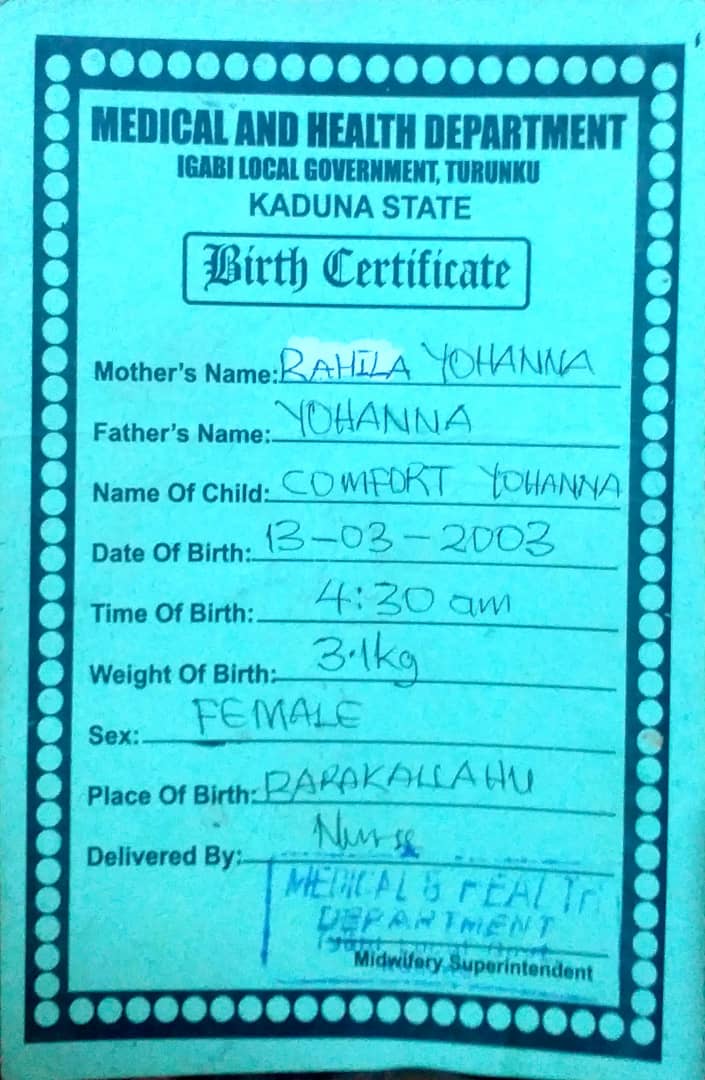 MEDICAL AND HEALTH DEPARTMENT
IGABI LOCAL GOVERNMENT, TURUNKU
KADUNA STATE
Birth Certificate
Mother's Name: RAHILA YOHANNA
Father's Name: YOHANNA
Name Of Child: COMFORT YOHANNA
Date Of Birth: 13-03-2003
Time Of Birth: 4:30 am
Weight Of Birth: 3.1kg
Sex: FEMALE
Place Of Birth: RARAKALLAHU
Delivered By: Nurse
MEDICAL & HEALTH
DEPARTMENT
Midwifery Superintendent